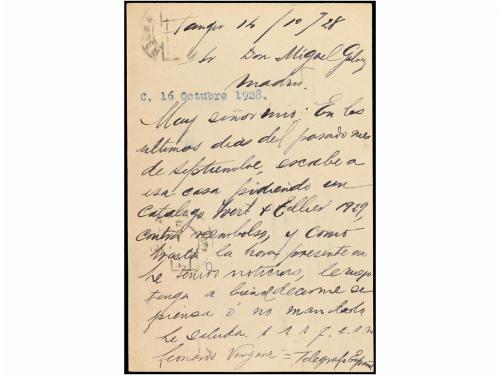 Tanger 14/10/28
Sr Don Miguel Galvez
Madrid.
C. 16 Octubre 1928.
Muy señor mio: En los
ultimos dias del pasado mes
de septiembre, escribi a
esa casa pidiendo un
Catalogo Yvert & Tellier 1929,
contra reembolso, y como
hasta la hora presente no
he tenido noticias, le ruego
tenga a bien decirme se
piensa ó no mandarlo
Le saluda. s s s q. e. s. m
Leonardo Vergara = Telegrafo Español